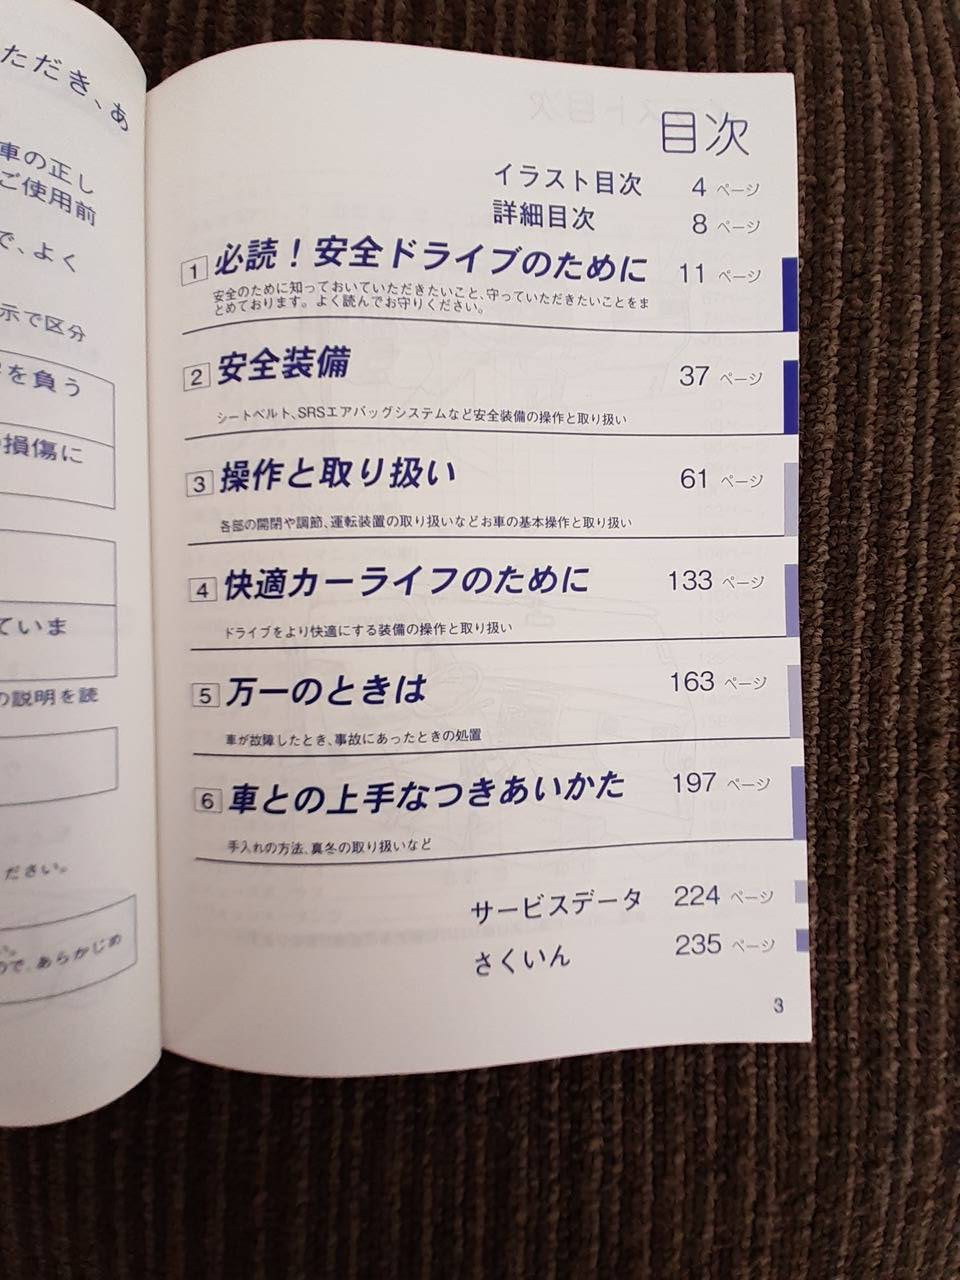 ただき、あ
車の正し
ご使用前
で、よく
示で区分
を負う
損傷に
ていま
の説明を読
ださい。
ので、あらかじめ
目次
イラスト目次 4 ページ
詳細目次 8 ページ
1 必読!安全ドライブのために 11 ページ
安全のために知っておいていただきたいこと、守っていただきたいことをま
とめております。よく読んでお守りください。
2 安全装備 37 ページ
シートベルト、SRSエアバッグシステムなど安全装備の操作と取り扱い
3 操作と取り扱い 61 ページ
各部の開閉や調節、運転装置の取り扱いなどお車の基本操作と取り扱い
4 快適カーライフのために 133 ページ
ドライブをより快適にする装備の操作と取り扱い
5 万一のときは 163 ページ
車が故障したとき、事故にあったときの処置
6 車との上手なつきあいかた 197 ページ
手入れの方法、真冬の取り扱いなど
サービスデータ 224 ページ
さくいん 235 ページ
3